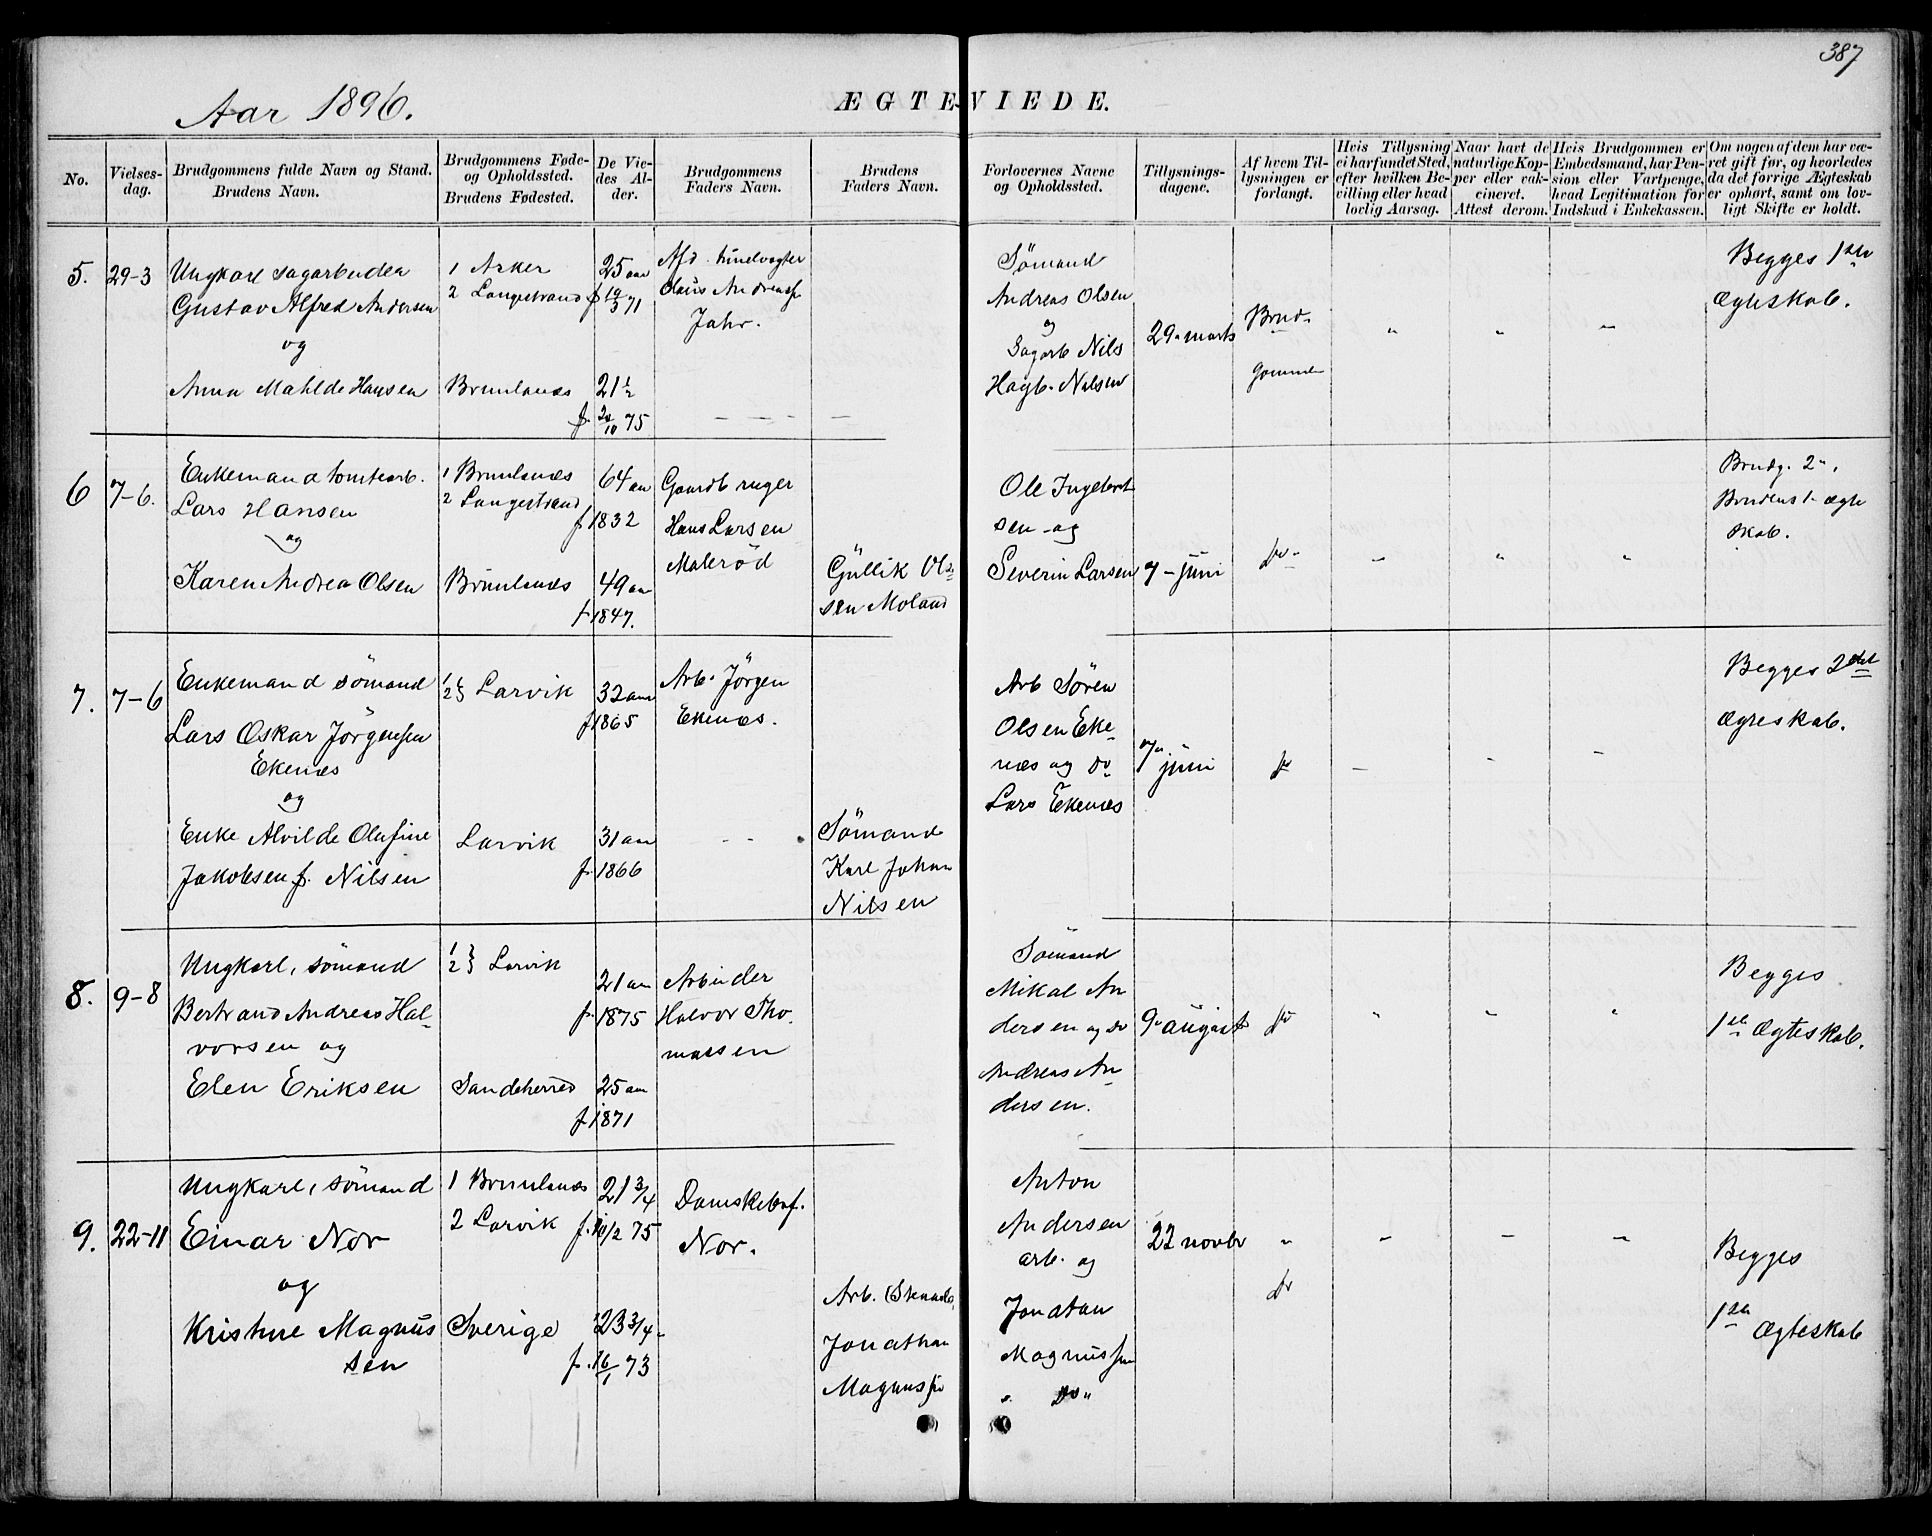 387
Aar 1896.
ÆGTEVIEDE.
No.
Vielses-
dag.
Brudgommens fulde Navn og Stand.
Brudens Navn.
Brudgommens Føde-
og Opholdssted.
Brudens Fødested.
De Vie-
des Al-
der.
Brudgommens
Faders Navn.
Brudens
Faders Navn.
Forlovernes Navne
og Opholdssted.
Tillysnings-
dagene.
Af hvem Til-
lysningen er
forlangt.
Hvis Tillysning
ei har fundet Sted,
efter hvilken Be-
villing eller hvad
lovlig Aarsag.
Naar havt de
naturlige Kop-
per eller vak-
cineret.
Attest derom.
Hvis Brudgommen er
Embedsmand, har Pen-
sion eller Vartpenge,
hvad Legitimation for
Indskud i Enkekassen.
Om nogen af dem har væ-
ret gift før, og hvorledes
da det forrige Ægteskab
er ophørt, samt om lov-
ligt Skifte er holdt.
5.
29-3
Ungkarl sagarbeider
Gustav Alfred Andersen
og
Anna Mathilde Hansen
1 Asker
2 Langestrand
Brunlanæs
25 aar
f. 19/3 71
21 1/2
f. 20/10 75
Claus
Jahr.
Sømand
Andreas Olsen
og
Sagarb Nils
Hagb. Nilsen
29. marts
Brud-
gommen
Begges 1ste
Ægteskab.
6
7-6.
Enkemand tomtearb.
Lars Hansen
og
Karen Andrea Olsen
1 Brunlanæs
2 Langestrand
Brunlanæs
64 aar
f 1832
49 aar
f 1847.
Gaardbruger
Hans Larsen
Malerød
Gullik Ol-
sen Moland
Ole Ingebret
sen og
Severin Larsen
7 - juni
do
Brudg. 2.,
Brudens 1. Ægte
skab.
7.
7-6
Enkemand sømand
Lars Oskar Jørgensen
Ekenæs
og
Enke Alvilde Olufine
Jakobsen f. Nilsen
1/2 } Larvik
Larvik
32 aar
f 1865
31 aar
f. 1866
Arb. Jørgen
Ekenæs.
Sømand
Karl Johan
Nilsen
Arb Søren
Olsen Eke-
næs og do
Lars Ekenæs
7.
juni
do
Begges 2det
Ægteskab.
8.
9-8
Ungkarl, sømand
Bertrand Andreas Hal-
vorsen og
Elen Eriksen
1/2 } Larvik
Sandeherred
21 aar
f. 1875
25 aar
f. 1871
Arbeider
Halvor Tho-
massen
Sømand
Mikal An
dersen og do
Andreas An
dersen.
9. august
do
Begges
1ste Ægteskab.
9.
22-11
Ungkarl, sømand
Einar Nor
og
Kristine Magnus
sen
1 Brunlanæs
2 Larvik
Sverige
21 3/4
f. 10/2 75
23 3/4
f. 16/1 73
Nor.
Arb.
Jonathan
Magnussen
Anton
Andersen
arb. og
Jonatan
Magnussen
Do
22 novbr
do
Begges
1ste Ægteskab